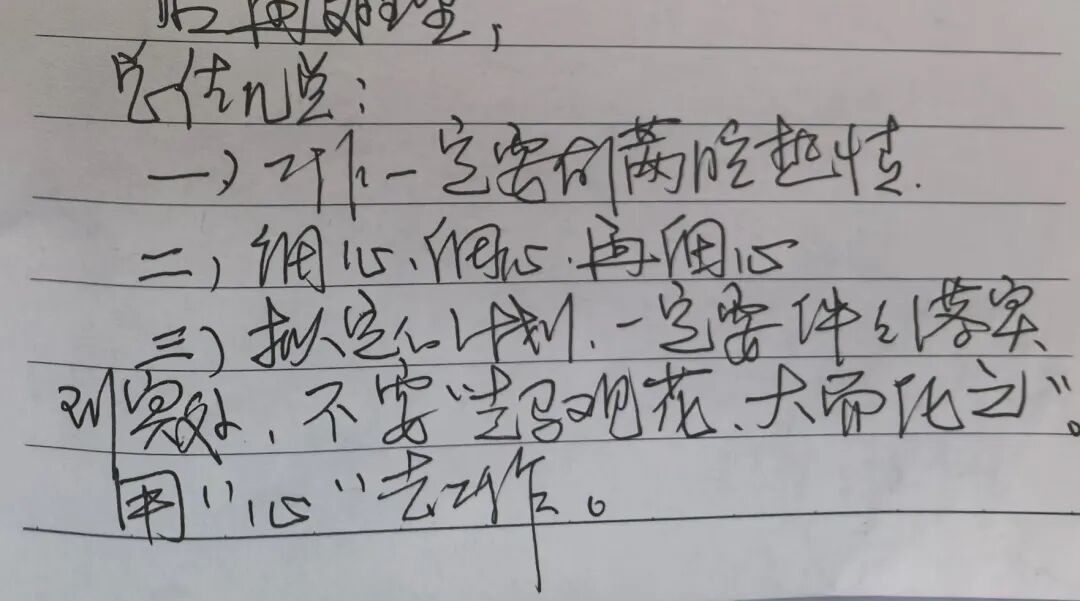 总结几点：
一）工作一定要有满腔热情.
二，细心、细心.再细心
三）拟定的计划.一定要件件落实
到实处，不要“走马观花、大而化之”。
用“心”去工作。